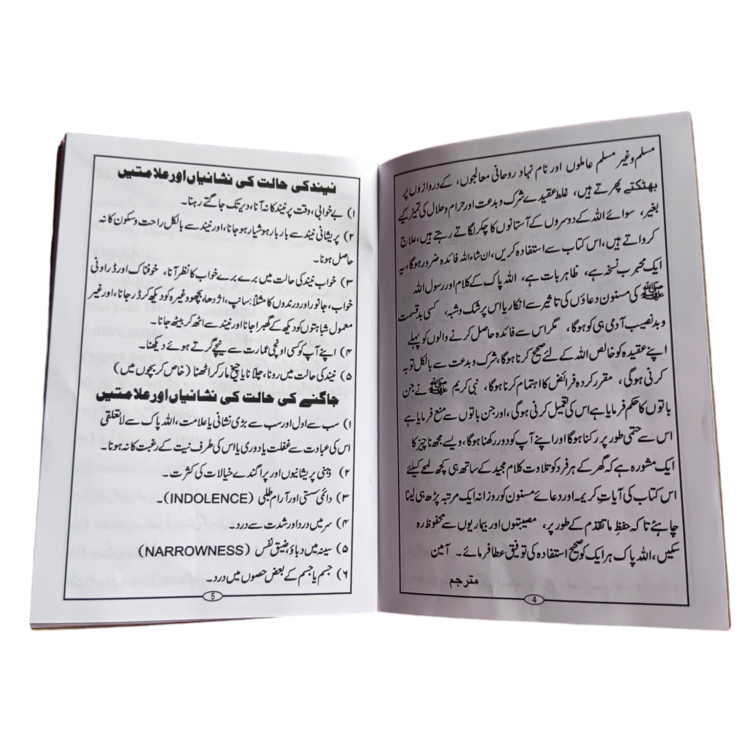 مسلم وغیر مسلم عاملوں اور نام نہاد روحانی معالجوں، کے دروازوں پر
بھٹکتے پھرتے ہیں، غلط عقیدے شرک و بدعت اور حرام وحلال کی تمیز کیے
بغیر، سوائے اللہ کے دوسروں کے آستانوں کا چکر لگاتے رہتے ہیں، علاج
کرواتے ہیں، اس کتاب سے استفادہ کریں، ان شاء اللہ فائدہ ضرور ہوگا، یہ
ایک مجرب نسخہ ہے، ظاہر بات ہے، اللہ پاک کے کلام اور رسول اللہ
ﷺ کی مسنون دعاؤں کی تاثیر سے انکار یا اس پر شک و شبہ، کسی بد قسمت
وبد نصیب آدمی ہی کو ہوگا، مگر اس سے فائدہ حاصل کرنے والوں کو پہلے
اپنے عقیدہ کو خالص اللہ کے لئے صحیح کرنا ہوگا، شرک و بدعت سے بالکل توبہ
کرنی ہوگی، مقرر کردہ فرائض کا اہتمام کرنا ہوگا، نبی کریم ﷺ نے جن
باتوں کا حکم فرمایا ہے اس کی تعمیل کرنی ہوگی، اور جن باتوں سے منع فرمایا ہے
اس سے حتمی طور پر رکنا ہوگا اور اپنے آپ کو دور رکھنا ہوگا، ویسے مجھ ناچیز کا
ایک مشورہ ہے کہ گھر کے ہر فرد کو تلاوت کلام مجید کے ساتھ ہی کچھ لمحے کیلئے
اس کتاب کی آیات کریمہ اور دعائے مسنون کو روزانہ ایک مرتبہ پڑھ ہی لینا
چاہئے تا کہ حفظ ما تقدم کے طور پر، مصیبتوں اور بیماریوں سے محفوظ رہ
سکیں، اللہ پاک ہر ایک کو صحیح استفادہ کی توفیق عطا فرمائے۔ آمین
مترجم
4
نیند کی حالت کی نشانیاں اور علامتیں
۱) بے خوابی، وقت پر نیند کا نہ آنا، دیر تک جاگتے رہنا۔
۲) پریشانی نیند سے بار بار ہوشیار ہو جانا، اور نیند سے بالکل راحت وسکون کا نہ
حاصل ہونا۔
۳) خواب نیند کی حالت میں برے برے خواب کا نظر آنا، خوفناک اور ڈراونی
خواب، جانور اور درندوں کا مثلاً: سانپ، اژدھا، بچھو وغیرہ کو دیکھ کر ڈر جانا، اور غیر
معمول شباہتوں کو دیکھ کے گھبرا جانا اور نیند سے اٹھ کر بیٹھ جانا۔
۴) اپنے آپ کو کسی اونچی عمارت سے نیچے گرتے ہوئے دیکھنا۔
۵) نیند کی حالت میں رونا، چلانا یا چیخ مار کر اٹھنا (خاص کر بچوں میں)
جاگنے کی حالت کی نشانیاں اور علامتیں
۱) سب سے اول اور سب سے بڑی نشانی یا علامت، اللہ پاک سے لا تعلقی
اس کی عبادت سے غفلت یا دوری یا اس کی طرف نیت کے رغبت کا نہ ہونا۔
۲) ذہنی پریشانیوں اور پراگندے خیالات کی کثرت۔
۳) دائمی سستی اور آرام طلبی (INDOLENCE)۔
۴) سر میں درد اور شدت سے درد۔
۵) سینہ میں دباؤ، ضیق نفس (NARROWNESS)
۶) جسم یا جسم کے بعض حصوں میں درد۔
5